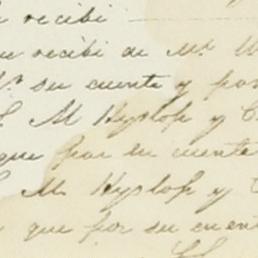 recibi
recibi de Mr. W
su cuenta y por
S. M Hyslop y C
que por su cuenta
S. M. Hyslop y C
que por su cuent